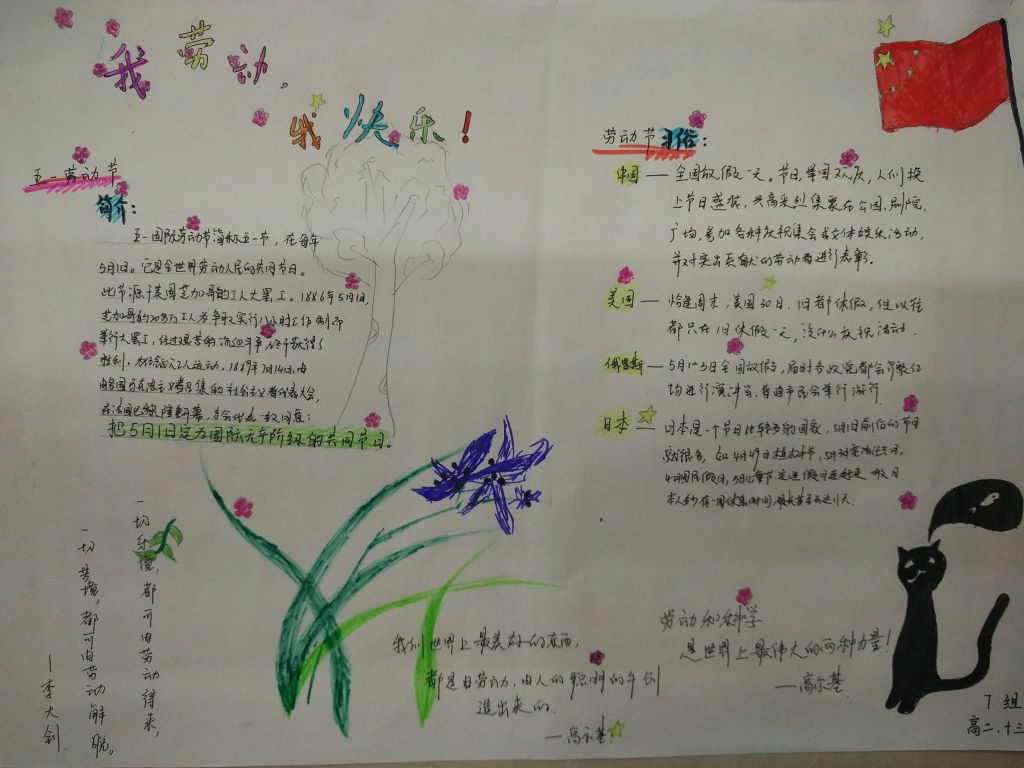 我劳动，
我快乐！
五一劳动节
简介：
五一国际劳动节简称五一节，在每年
5月1日。它是全世界劳动人民的共同节日。
此节源于美国芝加哥的工人大罢工。1886年5月1日，
芝加哥的20多万工人为争取实行八小时工作制而
举行大罢工，经过艰苦的流血斗争，终于获得了
胜利。为纪念工人运动，1889年7月14日，由
各国马克思主义者召集的社会主义者代表大会，
在法国巴黎隆重开幕。与会代表一致同意：
把5月1日定为国际无产阶级的共同节日。
一切乐境，都可由劳动得来，
一切苦境，都可由劳动解脱。
—李大钊
我们世界上最美好的东西，
都是由劳动、由人的聪明的手创
造出来的
—高尔基
劳动节习俗：
中国—全国放假一天。节日，举国欢庆，人们换
上节日盛装，兴高采烈集聚在公园、剧院、
广场，参加各种庆祝集会或文体娱乐活动，
并对突出贡献的劳动者进行表彰。
美国—恰逢周末，美国30日、1日都休假，但以往
都只在1日休假一天，没什么庆祝活动.
俄罗斯—5月1~3日全国放假，届时各政党都会齐聚红
场进行演讲会，各地市民会举行游行
日本—日本是一个节日比较多的国家，5月1日前后的节日
就很多，如4月29日植树节，5月3日宪法纪念日，
4日国民假日，5日儿童节
劳动和科学
是世界上最伟大的两种力量！
—高尔基
7组
高二、十三